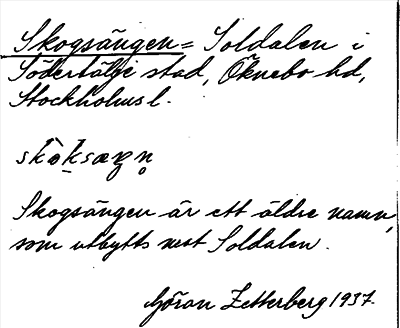 Skogsängen = Soldalen i
Södertälje stad, Öknebo hd,
Stockholms l.
skò̱ksæŋn̥
Skogsängen är ett äldre namn,
som utbytts mot Soldalen.
Göran Zetterberg 1937.